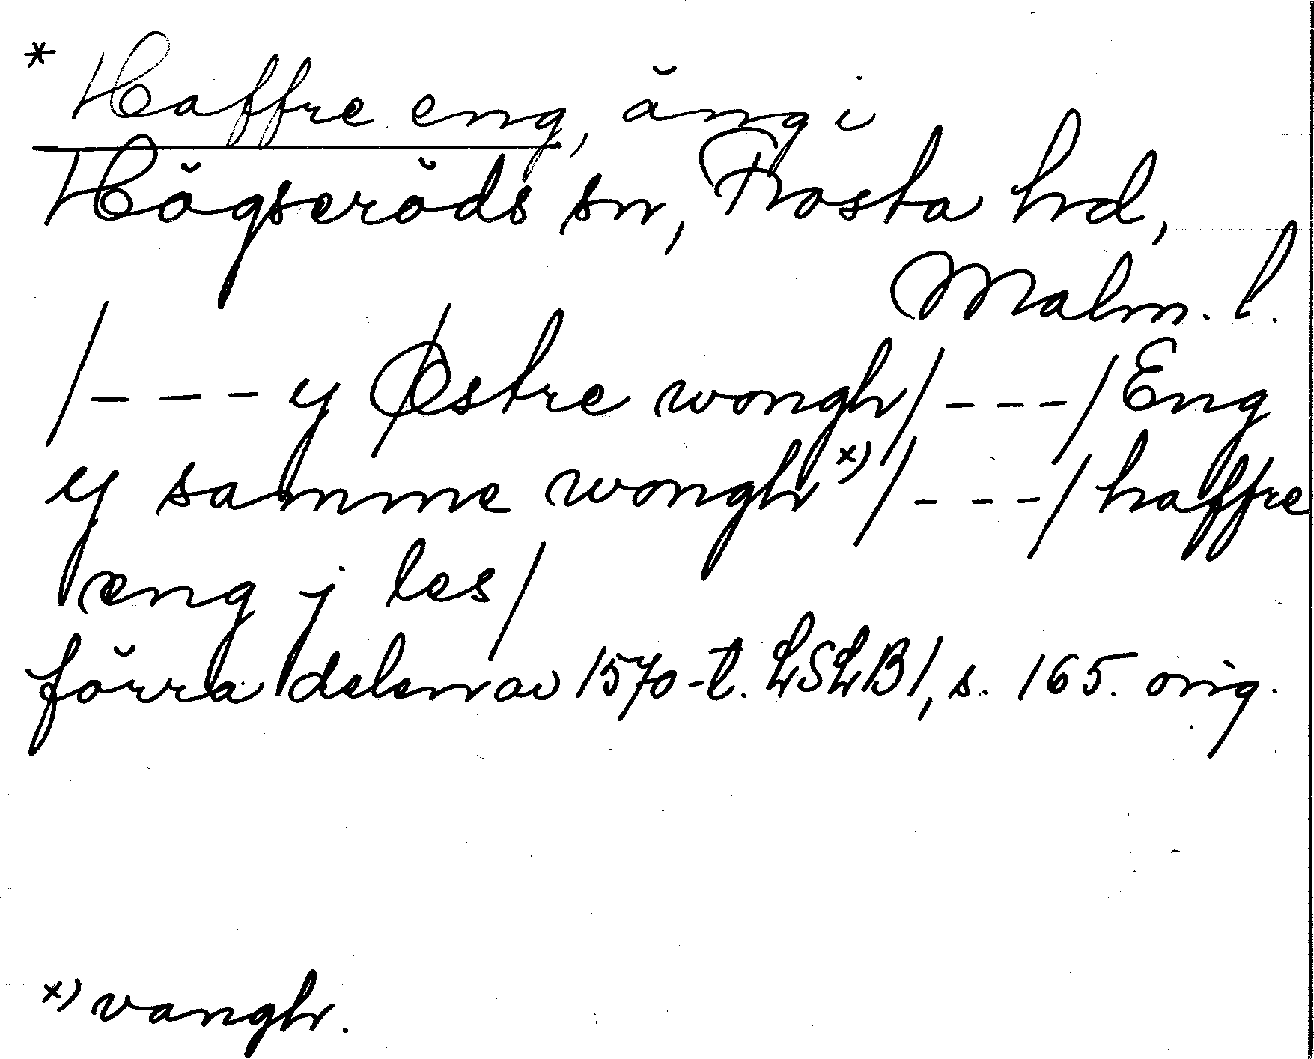 * Haffre eng, äng i
Högseröds sn, Frosta hd,
Malm. l.
/--- y Østre wongh/---/Eng
y samme wongh x)/---/haffre
eng j les/
förra delen av 1570-t. LSLB1, s. 165. orig.
x) vangh.